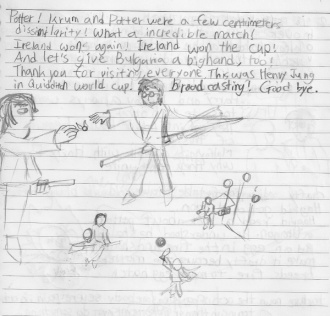 Potter! Krum and Potter were a few centimeters
dissimilarity! What a incredible match!
Ireland won again! Ireland won the cup!
And let's give Bulgaria a bighand, too!
Thank you for visiting everyone This was Henry Jung
in Quidditch world cup. broad casting! Good bye.